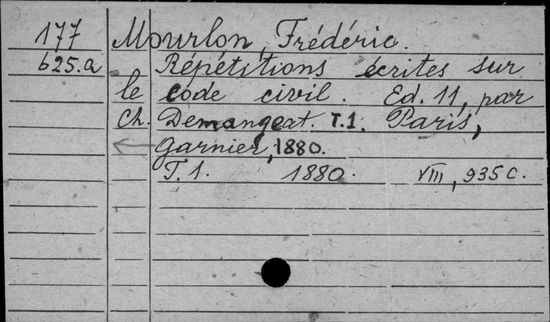 177 Mourlon, Frédéric.
625.a Répétitions écrites sur
le code civil. Ed. 11, par
Ch. Demangeat. T.1. Paris,
Garnier, 1880.
T. 1. 1880. VIII, 935 c.